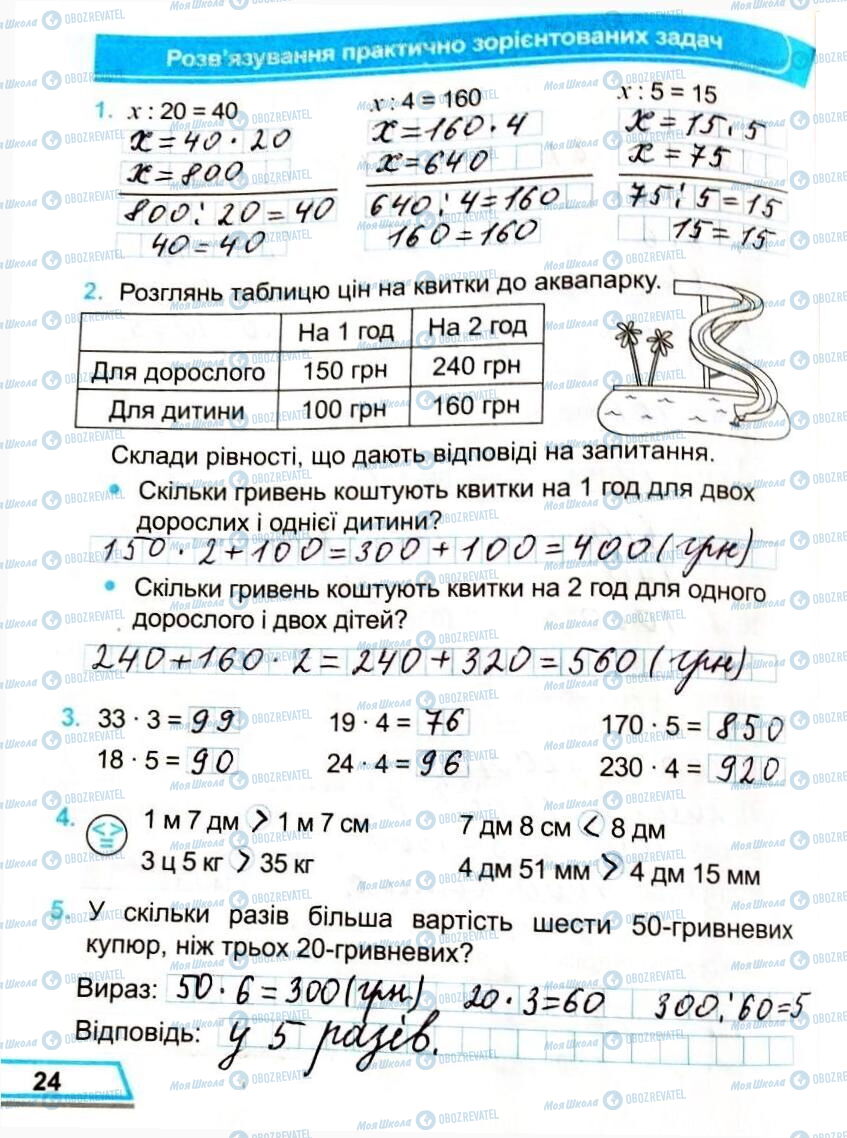 Розв'язування практично зорієнтованих задач
1. x : 20 = 40
x = 40 · 20
x = 800
800 : 20 = 40
40 = 40
x : 4 = 160
x = 160 · 4
x = 640
640 : 4 = 160
160 = 160
x : 5 = 15
x = 15 · 5
x = 75
75 : 5 = 15
15 = 15
2. Розглянь таблицю цін на квитки до аквапарку.
На 1 год На 2 год
Для дорослого 150 грн 240 грн
Для дитини 100 грн 160 грн
Склади рівності, що дають відповіді на запитання.
• Скільки гривень коштують квитки на 1 год для двох
дорослих і однієї дитини?
150 · 2 + 100 = 300 + 100 = 400 (грн)
• Скільки гривень коштують квитки на 2 год для одного
дорослого і двох дітей?
240 + 160 · 2 = 240 + 320 = 560 (грн)
3. 33 · 3 = 99 19 · 4 = 76 170 · 5 = 850
18 · 5 = 90 24 · 4 = 96 230 · 4 = 920
4. 1 м 7 дм > 1 м 7 см 7 дм 8 см < 8 дм
< > =
3 ц 5 кг > 35 кг 4 дм 51 мм > 4 дм 15 мм
5. У скільки разів більша вартість шести 50-гривневих
купюр, ніж трьох 20-гривневих?
Вираз: 50 · 6 = 300 (грн) 20 · 3 = 60 300 : 60 = 5
Відповідь: у 5 разів.
24
МояШкола OBOZREVATEL